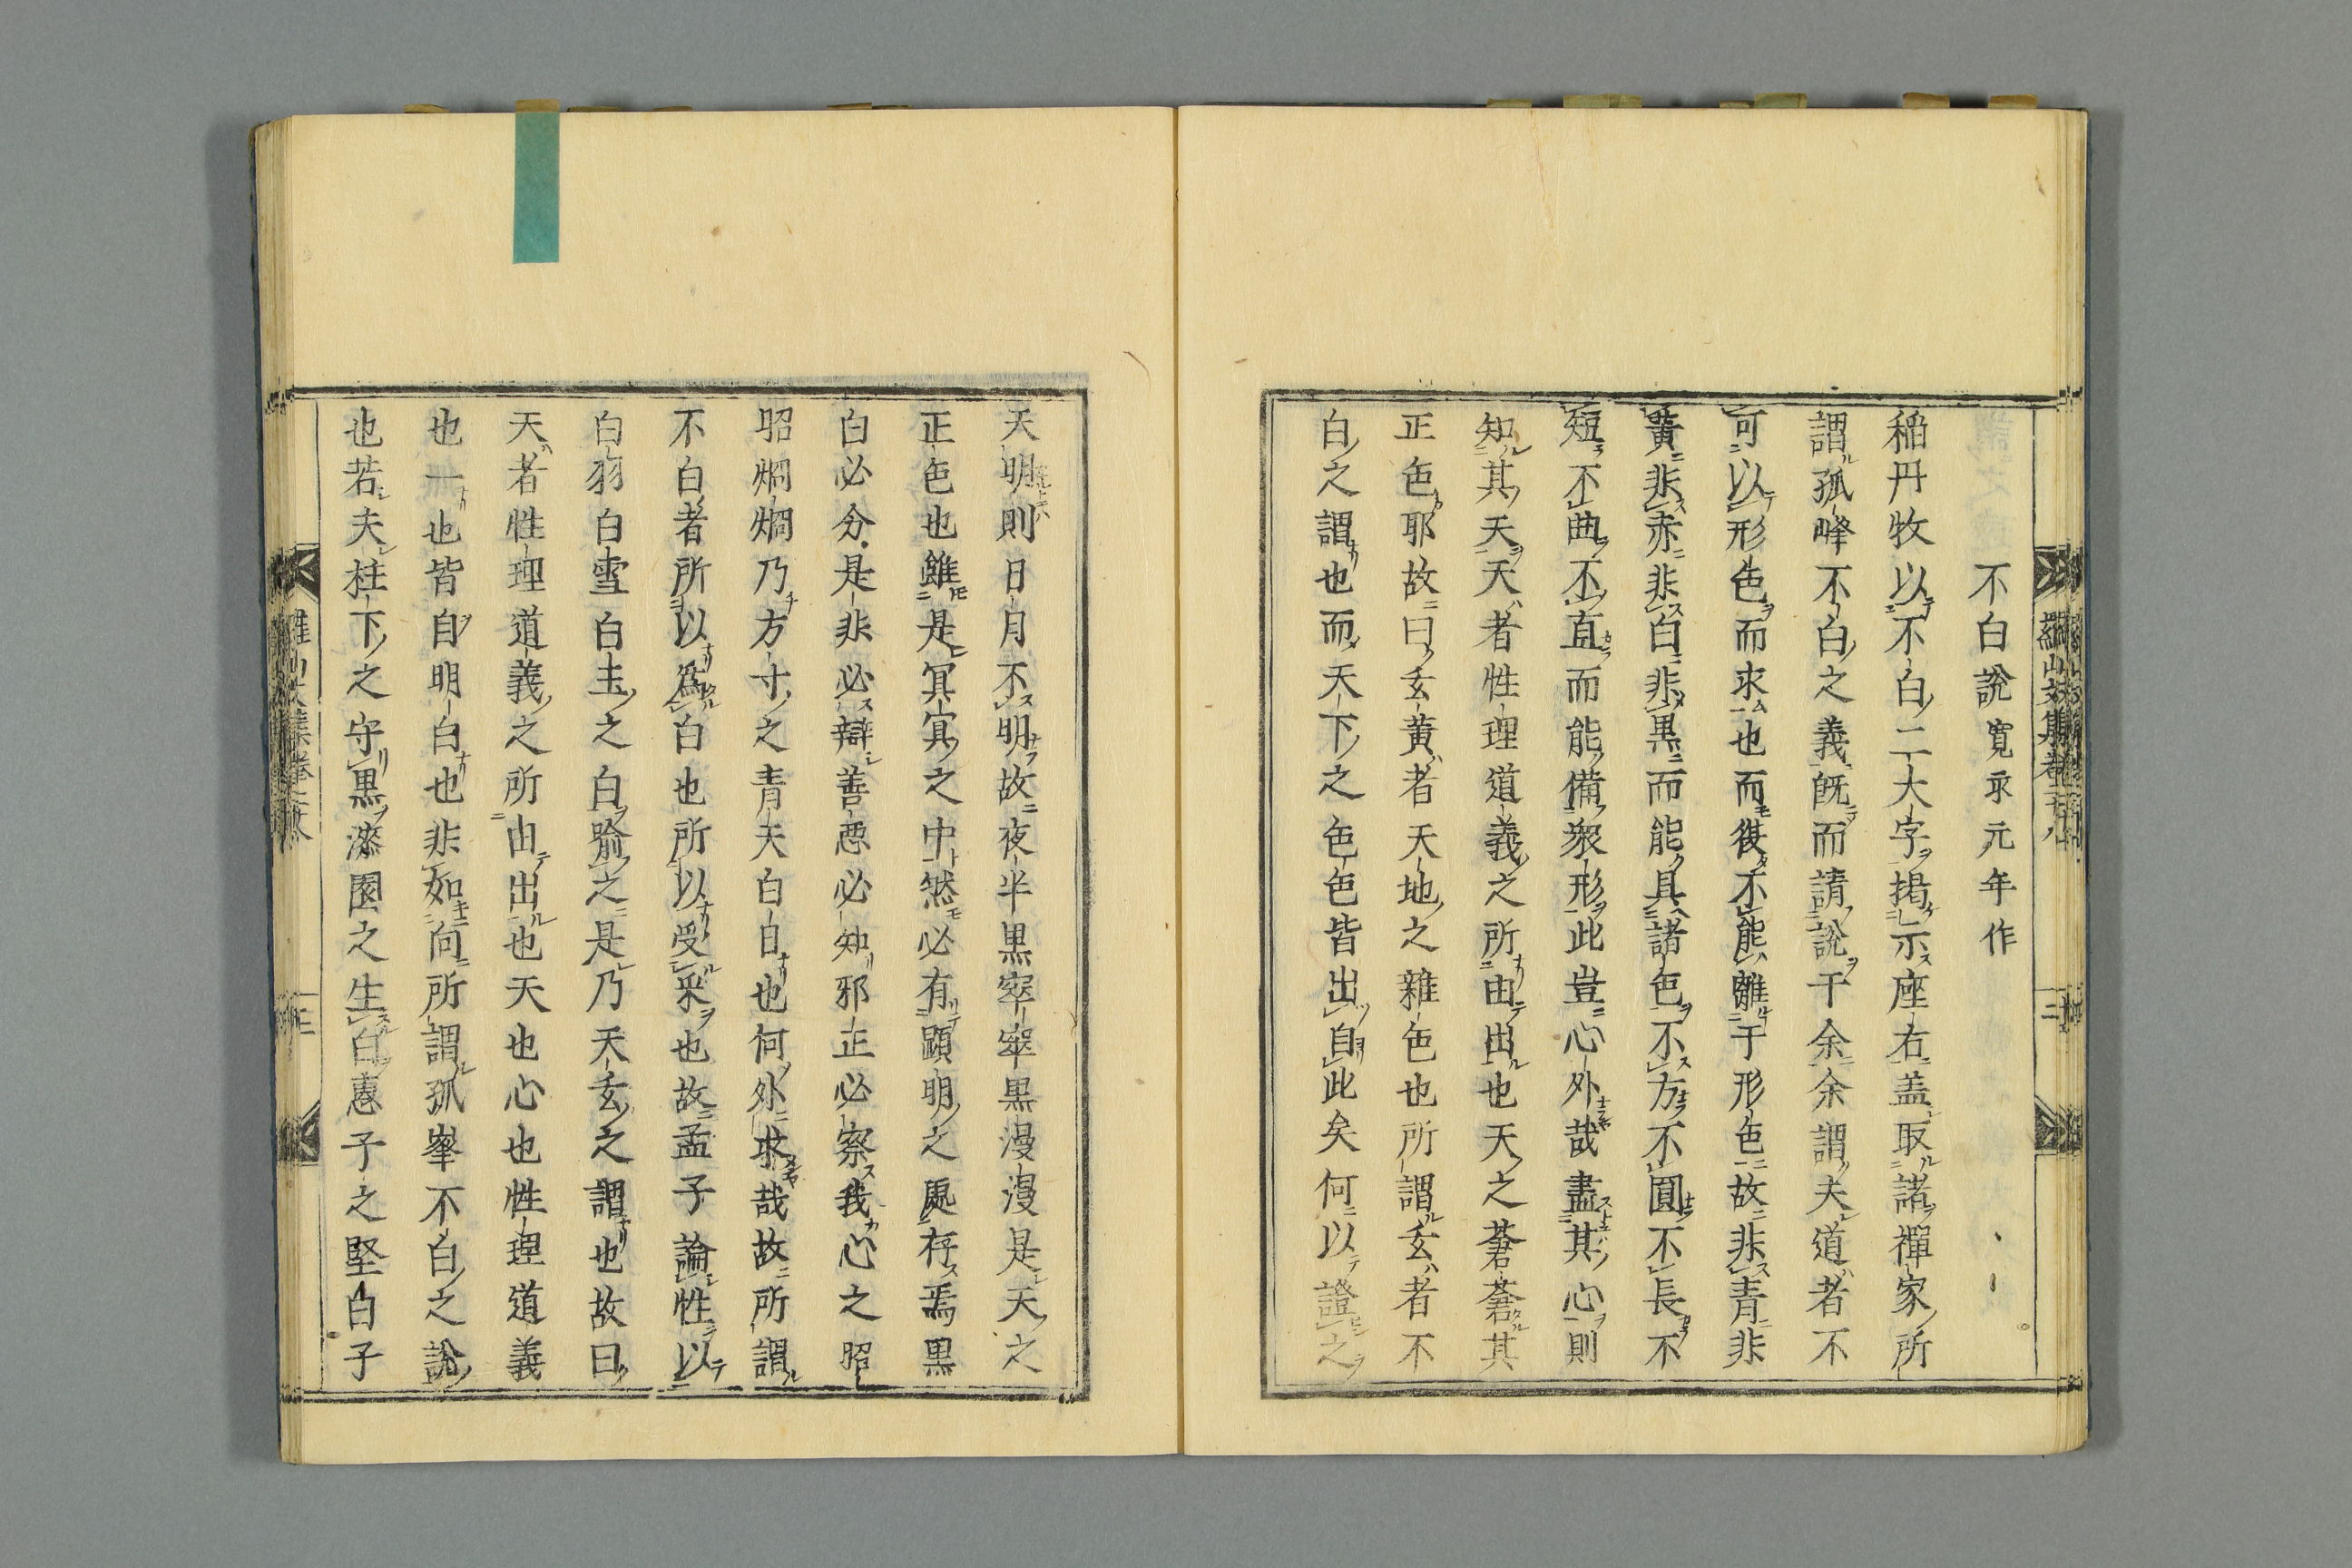 不白說寬永元年作
稲丹牧以不白二大字揭示座右盖取諸禪家所
謂孤峰不白之義既而請說于余余謂夫道者不
可以形色而求也而復不能離于形色故非青非
黃非赤非白非黒而能具諸色不方不圓不長不
短不曲不直而能備衆形此豈心外哉盡其心則
知其天天者性理道義之所由出也天之蒼蒼其
正色耶故曰玄黃者天地之雜色也所謂玄者不
白之謂也而天下之色色皆出自此矣何以證之
天明則日月不明故夜半黒窣窣黒漫漫是天之
正色也雖是冥冥之中然必有顕明之處存焉黒
白必分是非必辯善惡必知邪正必察我心之昭
昭烱烱乃方寸之青天白日也何外求哉故所謂
不白者所以爲白也所以受采也故孟子論性以
白羽白雪白玉之白喻之是乃天玄之謂也故曰
天者性理道義之所由出也天也心也性理道義
也一也皆自明白也非如向所謂孤峯不白之說
也若夫柱下之守黒漆園之生白惠子之堅白子
羅山文集卷
二
三